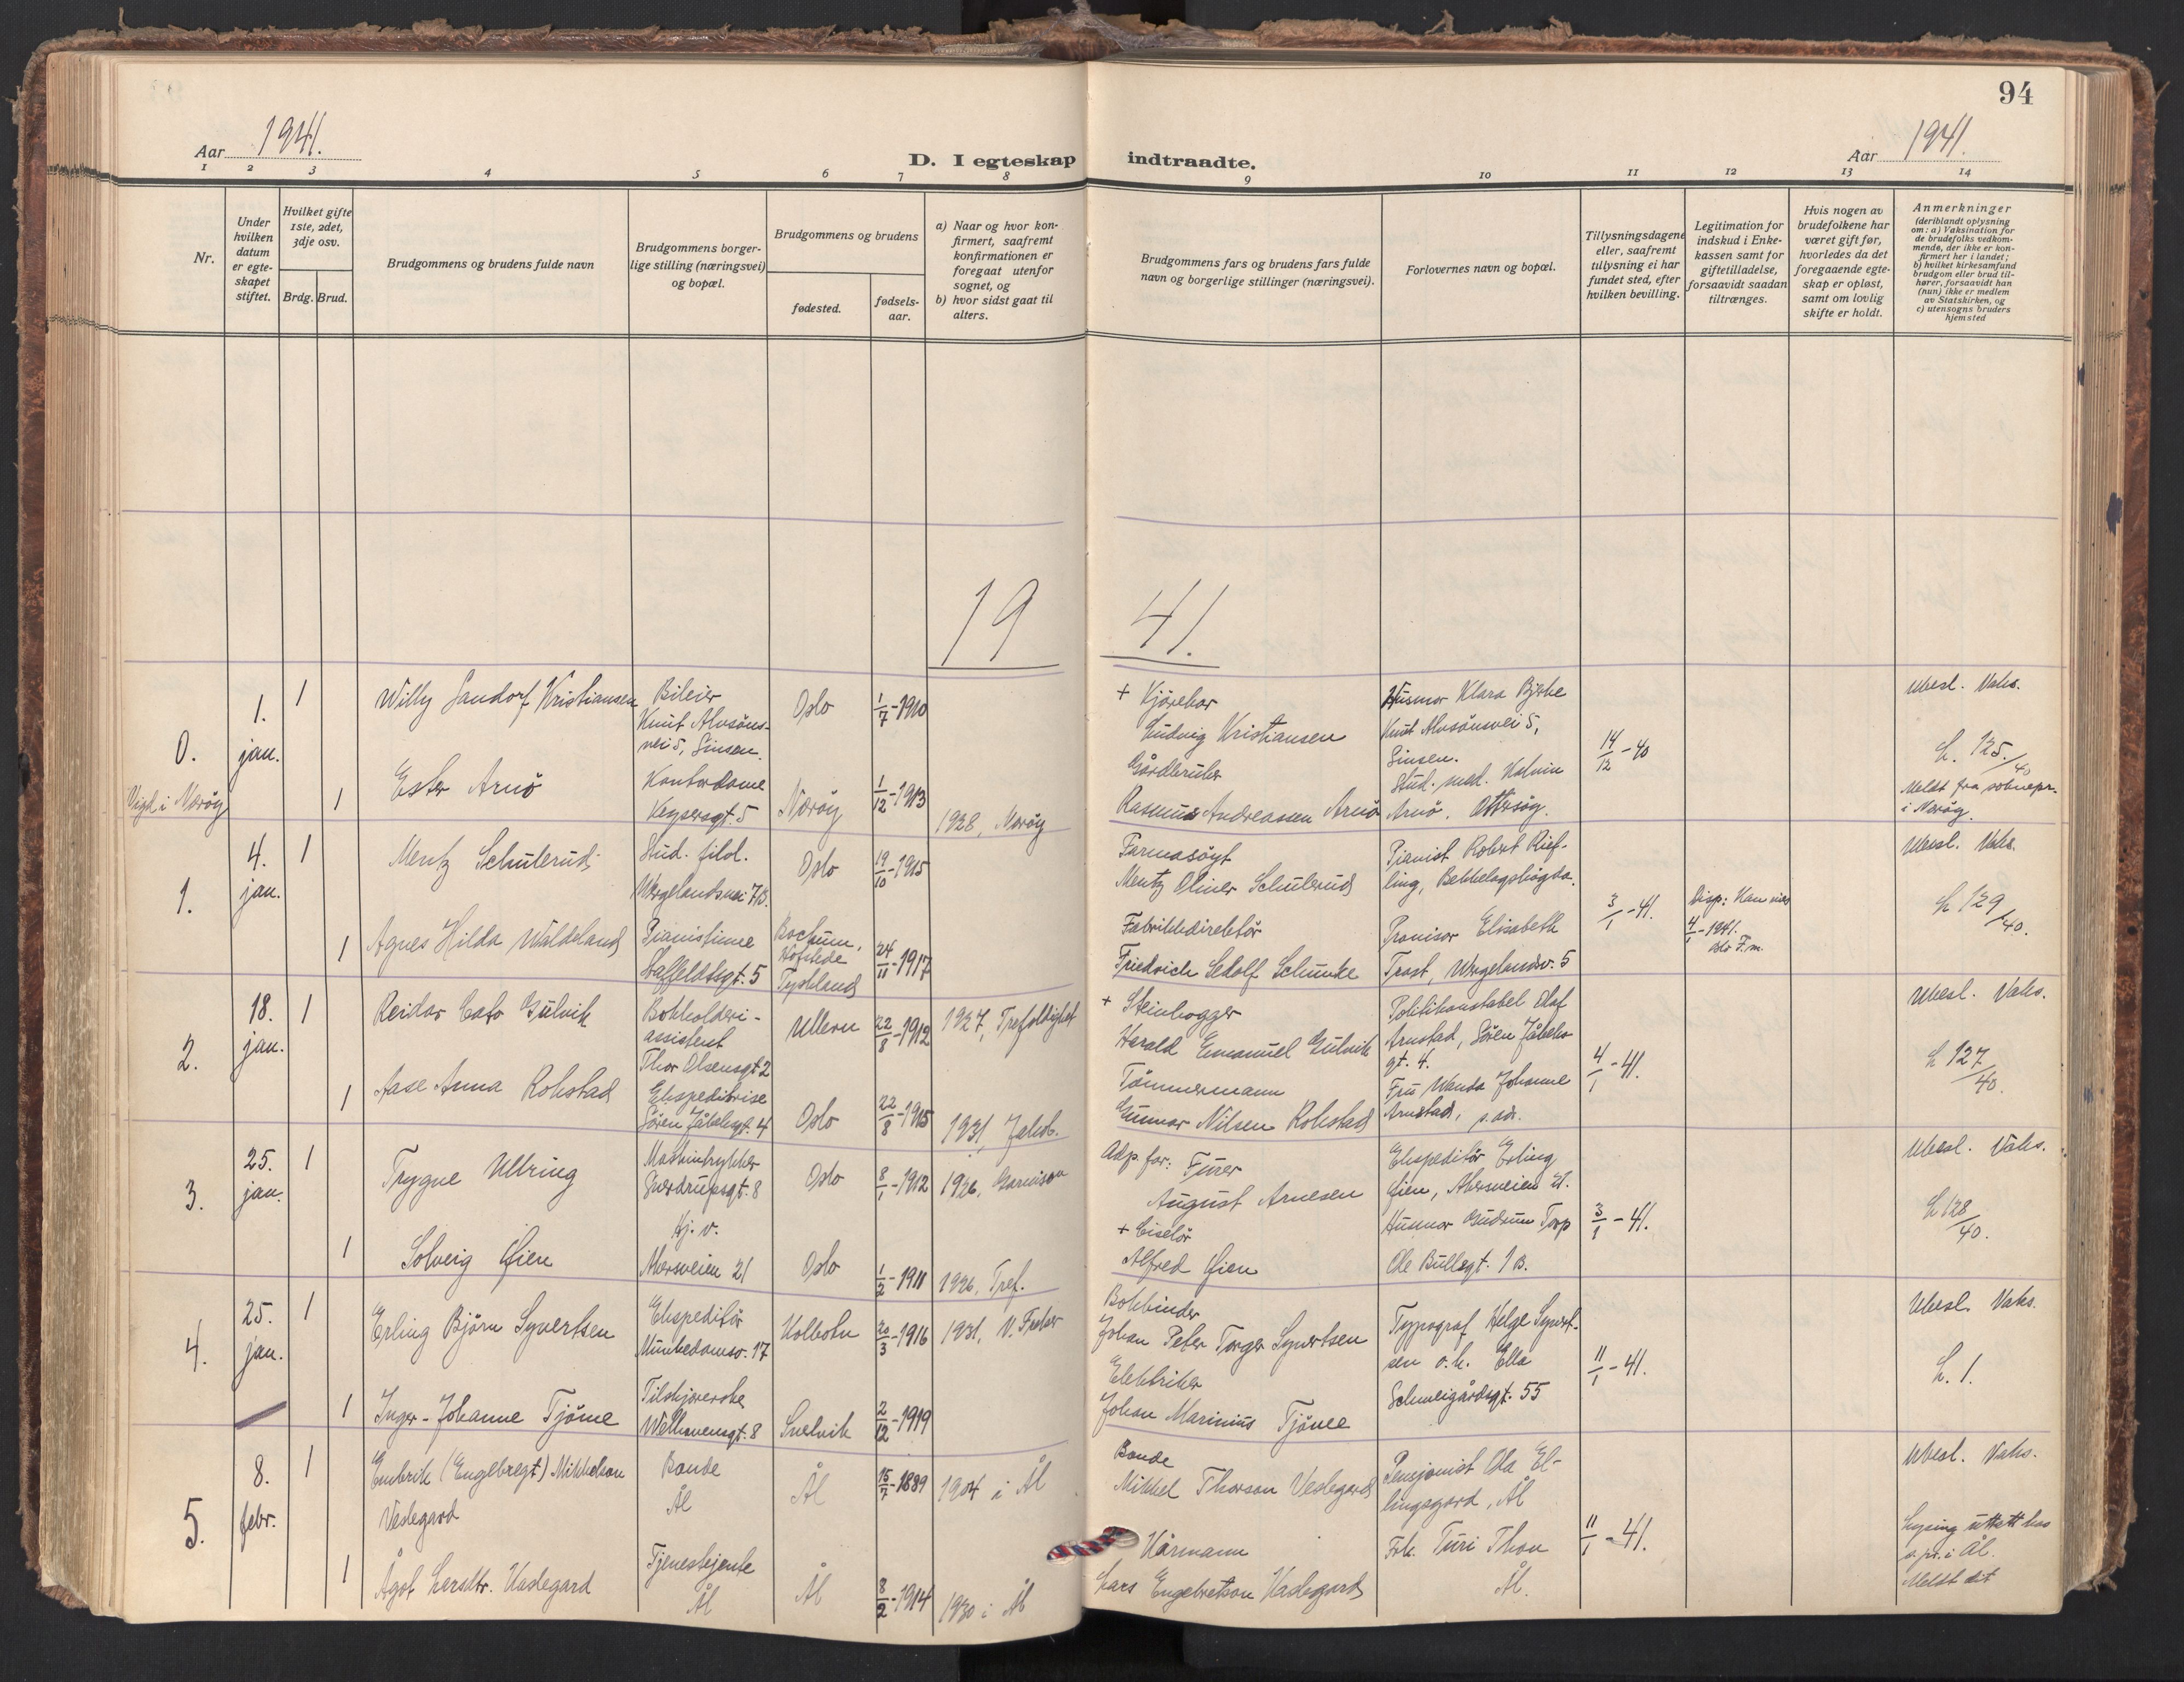 94
Aar 1941.
D. I egteskap indtraadte.
Aar 1941.
1 2 3 4 5 6 7 8 9 10 11 12 13 14
Nr.
Under
hvilken
datum
er egte-
skapet
stiftet.
Hvilket gifte
1ste, 2det,
3dje osv.
Brdg. Brud.
Brudgommens og brudens fulde navn
Brudgommens borger-
lige stilling (næringsvei)
og bopæl.
Brudgommens og brudens
fødested.
fødsels-
aar.
a) Naar og hvor kon-
firmert, saafremt
konfirmationen er
foregaat utenfor
sognet, og
b) hvor sidst gaat til
alters.
Brudgommens fars og brudens fars fulde
navn og borgerlige stillinger (næringsvei).
Forlovernes navn og bopæl.
Tillysningsdagene
eller, saafremt
tillysning ei har
fundet sted, efter
hvilken bevilling.
Legitimation for
indskud i Enke-
kassen samt for
giftetilladelse,
forsaavidt saadan
tiltrænges.
Hvis nogen av
brudefolkene har
været gift før,
hvorledes da det
foregaaende egte-
skap er opløst,
samt om lovlig
skifte er holdt.
Anmerkninger
(deriblandt oplysning
om: a) Vaksination for
de brudefolks vedkom-
mende, der ikke er kon-
firmert her i landet;
b) hvilket kirkesamfund
brudgom eller brud til-
hører, forsaavidt han
(hun) ikke er medlem
av Statskirken, og
c) utensogns bruders
hjemsted
19 41.
0.
Vigd i Nærøy
1.
jan.
1
Willy Sandorf Kristiansen
Bileier
Knut Alvsöns-
vei 5, Sinsen.
Oslo
1/7 - 1910
+ Kjørekar
Ludvig Kristiansen
Husmor Klara Bjerke
Knut Alvsönsvei 5,
Sinsen.
14/12 - 40
Ubesl. Vaks.
L. 125/40
Meldt fra sokneprn.
i Nærøy.
1
Ester Arnö
Kontordame
Keysersgt. 5
Nærøy
1/12 - 1913
1928, Nærøy
Gårdbruker
Rasmus Andreassen Arnö
Stud. med. Kolvin
Arnö, Ottersøy.
1.
4.
jan.
1
Mentz Schulerud
Stud. filol.
Wergelandsvei 7B.
Oslo
19/10 - 1915
Farmasöyt
Mentz Oliver Schulerud
Pianist Robert Rief-
ling, Bekkelagshøgda.
3/1 - 41.
4/1 - 1941.
Oslo F.m.
Ubesl. Vaks.
L 129/40.
1
Agnes Hilda Wäldeland
Pianistinne
Staffeldtsgt. 5
Bochum,
Hofstede
Tyskland
24/11 - 1917
Fabrikkdirektör
Friedrich Sedolf Schumke
Provisor Elisabeth
Trost, Wergelandsv. 5
2.
18.
jan.
1
Reidar Cato Gulvik
Bokholderi-
assistent
Thor Olsensgt 2
Ullern
22/8 - 1912
1927, Trefoldighet
+ Steinhogger
Harald Emanuel Gulvik
Politikonstabel Olaf
Arnstad, Sören Jåbeks
gt. 4.
4/1 - 41.
Ubesl. Vaks.
L 127/40.
1
Aase Anna Rokstad
Ekspeditrise
Sören Jåbeksgt. 4
Oslo
22/8 - 1915
1931, Jakob.
Tømmermann
Gunnar Nilsen Rokstad
Fru Wanda Johanne
Arnstad, s. adr.
3.
25.
jan.
1
Trygve Ullring
Maskintrykker
Sverdrupsgt. 8
Oslo
8/1 - 1912
1926, Garnison
Adp. far: Furer
August Arnesen
Ekspeditör Erling
Øien, Akersveien 21.
3/1 - 41.
Ubesl. Vaks.
L 128/40.
1
Solveig Øien
Hj. v.
Akersveien 21
Oslo
1/2 - 1911
1926, Tref.
+ Ciselör
Alfred Øien
Husmor Gudrun Torp
Ole Bullsgt. 1 B.
4.
25.
jan.
1
Erling Björn Syvertsen
Ekspeditör
Munkedamsv. 17
Kolbotn
20/3 - 1916
1931, V. Frikes
Bokbinder
Johan Peter Torger Syvertsen
Typograf Helge Syvert-
sen o.h. Ella
Schweigårdsgt. 55
11/1 - 41.
Ubesl. Vaks.
L. 1.
1
Inger-Johanne Tjöme
Tilskjærerske
Welhavensgt. 8
Svelvik
2/12 - 1919
Elektriker
Johan Marinius Tjöme
5.
8.
febr.
1
Embrik (Engebregt) Mikkelson
Veslegard
Bonde
Ål
Ål
15/7 - 1889
1904 i Ål
Bonde
Mikkel Thorson Veslegard
Pensjonist Ola El-
lingsgard, Ål
11/1 - 41.
Ubesl. Vaks.
Lysing uttatt hos
s.pr. i Ål.
Meldt dit
1
Ågot Larsdtr. Vaslegard
Tjenestejente
Ål
Ål
8/2 - 1914
1930 i Ål
Kårmann
Lars Engebretson Vaslegard
Frk. Turi Thon
Ål.